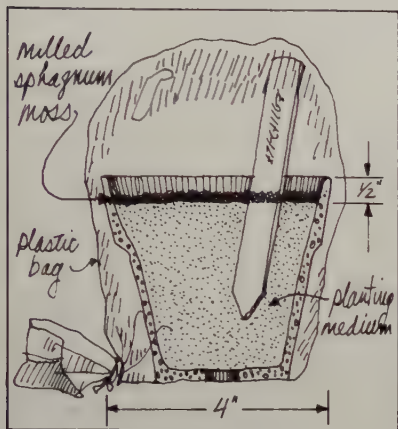 milled
sphagnum
moss
1/2"
plastic
bag
planting
medium
4"